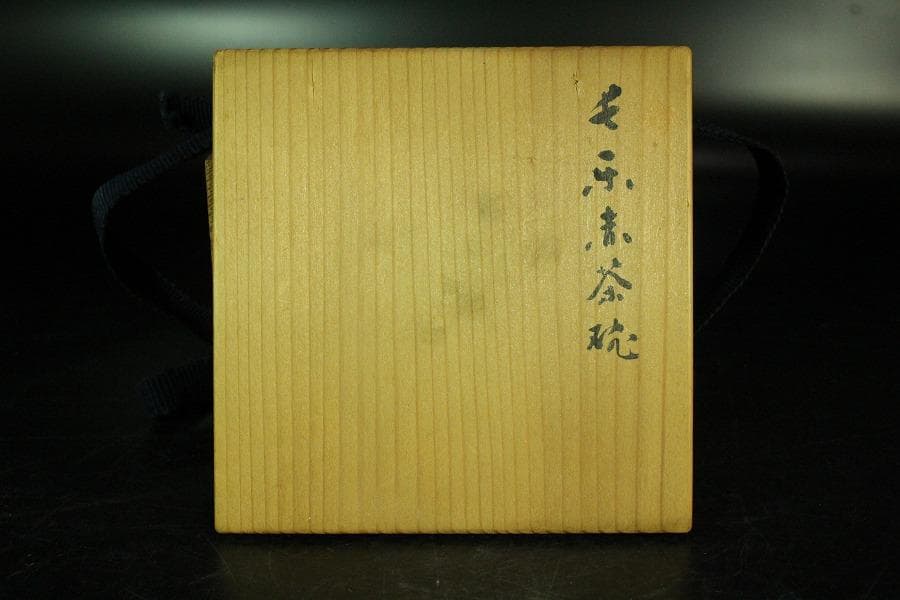 長楽赤茶碗